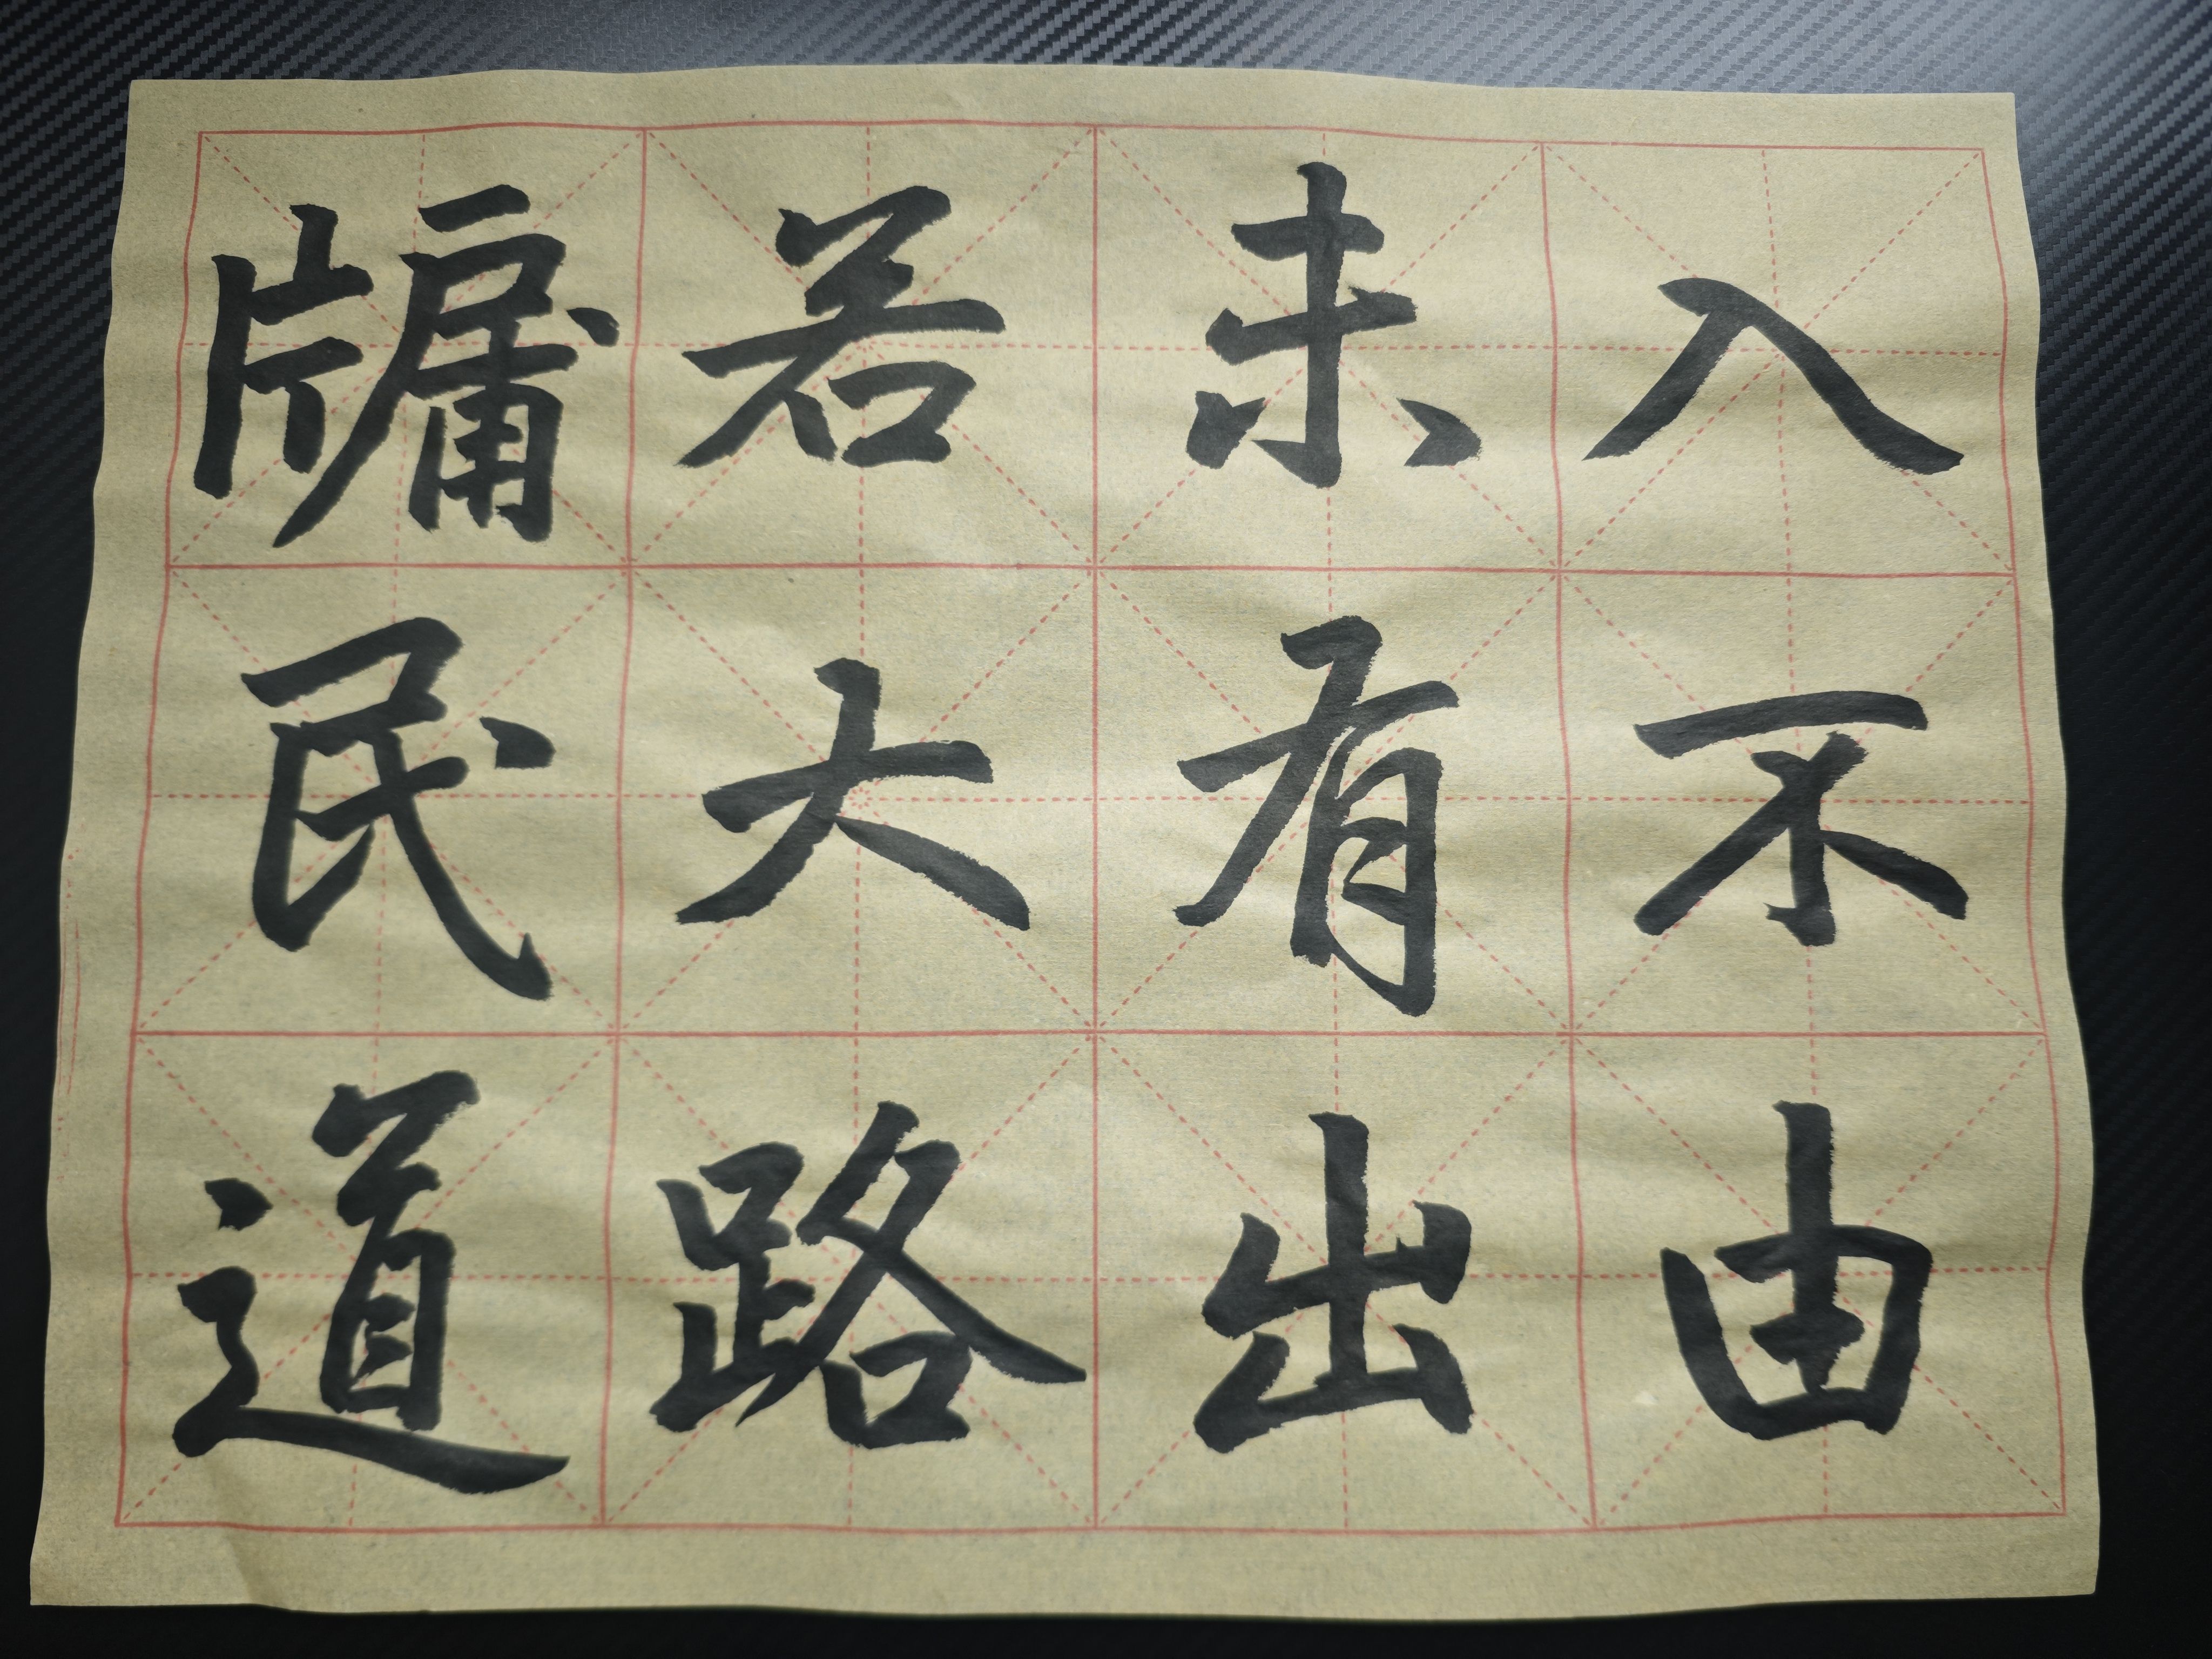 牖民道
若大路
未有出
入不由